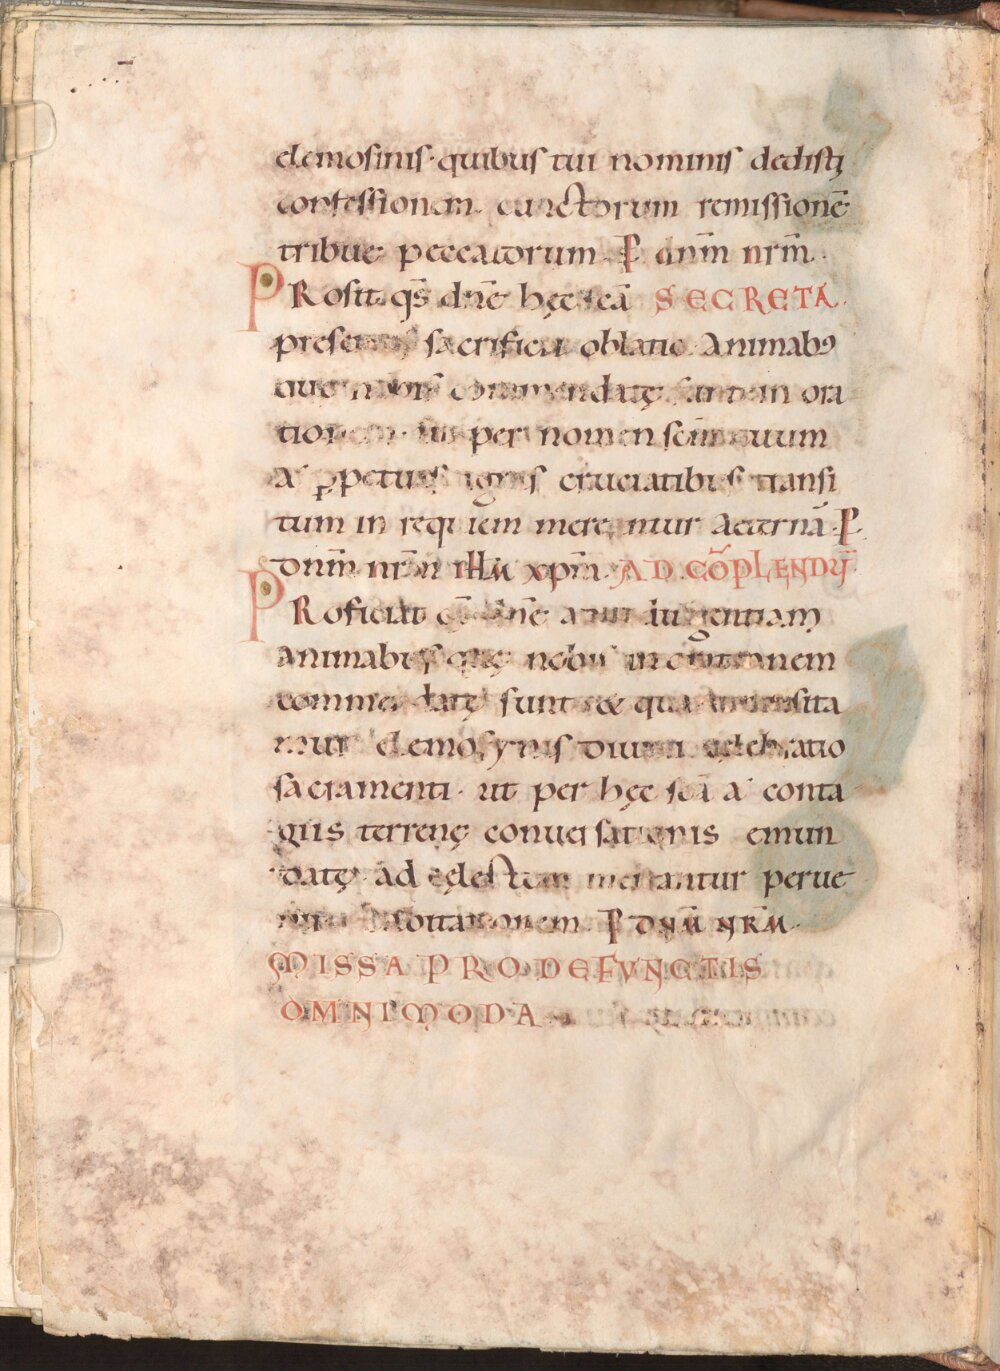 elemosinis · quibus tui nominis dedisti
confessionem cunctorum remissionē
tribue peccatorum · P dnm̄ nrm̄ ·
PRosit qs̄ dnē hęc scā SECRETA ·
presentis sacrificii oblatio Animabꝯ
que nobis commendatę sunt in ora
tionem ut per nomen scm̄ tuum
A ꝑpetuis ignis cruciatibus transi
tum in requiem mereantur Aeternā · P
dnm̄ nrm̄ ihm̄ xpm̄ · AD CŌPLENDŪ
PRoficiat qs̄ dnē ad indulgentiam
animabus quę nobis in orationem
commendatę sunt &
elemosynis diuini celebratio
sacramenti · ut per hęc scā a conta
giis terrenę conuersationis emun
datę ad cęlestem mereantur perue
nire habitationem P DNM̄ NRM̄ ·
MISSA PRO DEFUNCTIS
OMNIMODA